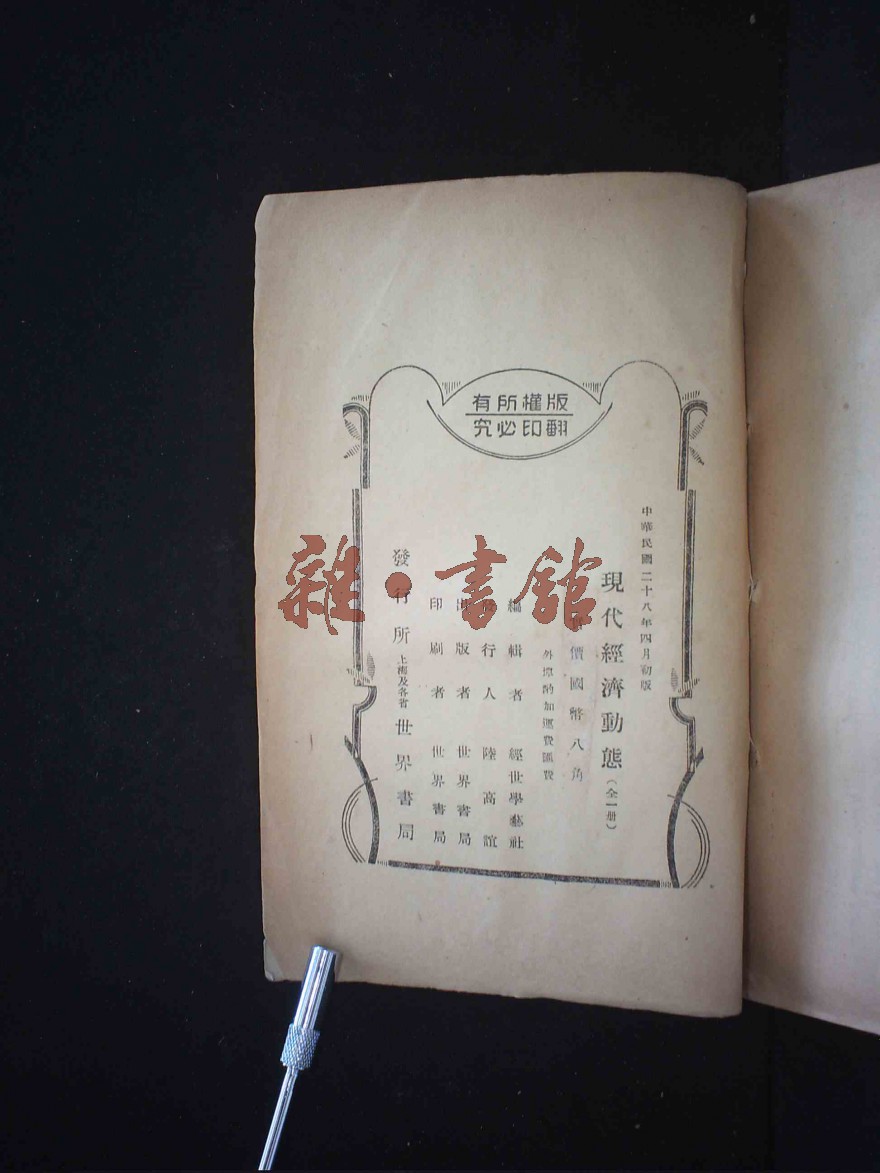 版權所有
翻印必究
中華民國二十八年四月初版
現代經濟動態（全一册）
價國幣八角
外埠酌加運費匯費
編輯者 經世學藝社
發行人 陸高誼
出版者 世界書局
印刷者 世界書局
發行所 上海及各省 世界書局
雜·書館